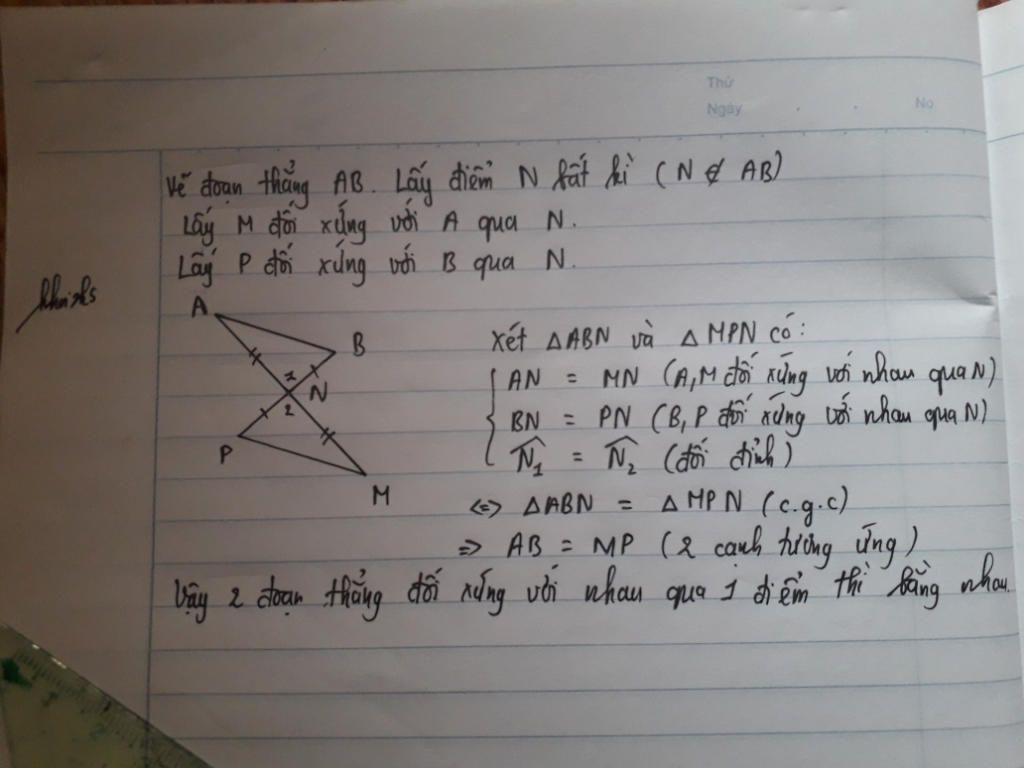 Thứ
Ngày . . No
Vẽ đoạn thẳng AB. Lấy điểm N bất kì (N ∉ AB)
Lấy M đối xứng với A qua N.
Lấy P đối xứng với B qua N.
A
B
1
N
2
P
M
xét △ABN và △MPN có:
AN = MN (A,M đối xứng với nhau qua N)
BN = PN (B,P đối xứng với nhau qua N)
N̂₁ = N̂₂ (đối đỉnh)
<=> △ABN = △MPN (c.g.c)
=> AB = MP (2 cạnh tương ứng)
Vậy 2 đoạn thẳng đối xứng với nhau qua 1 điểm thì bằng nhau.